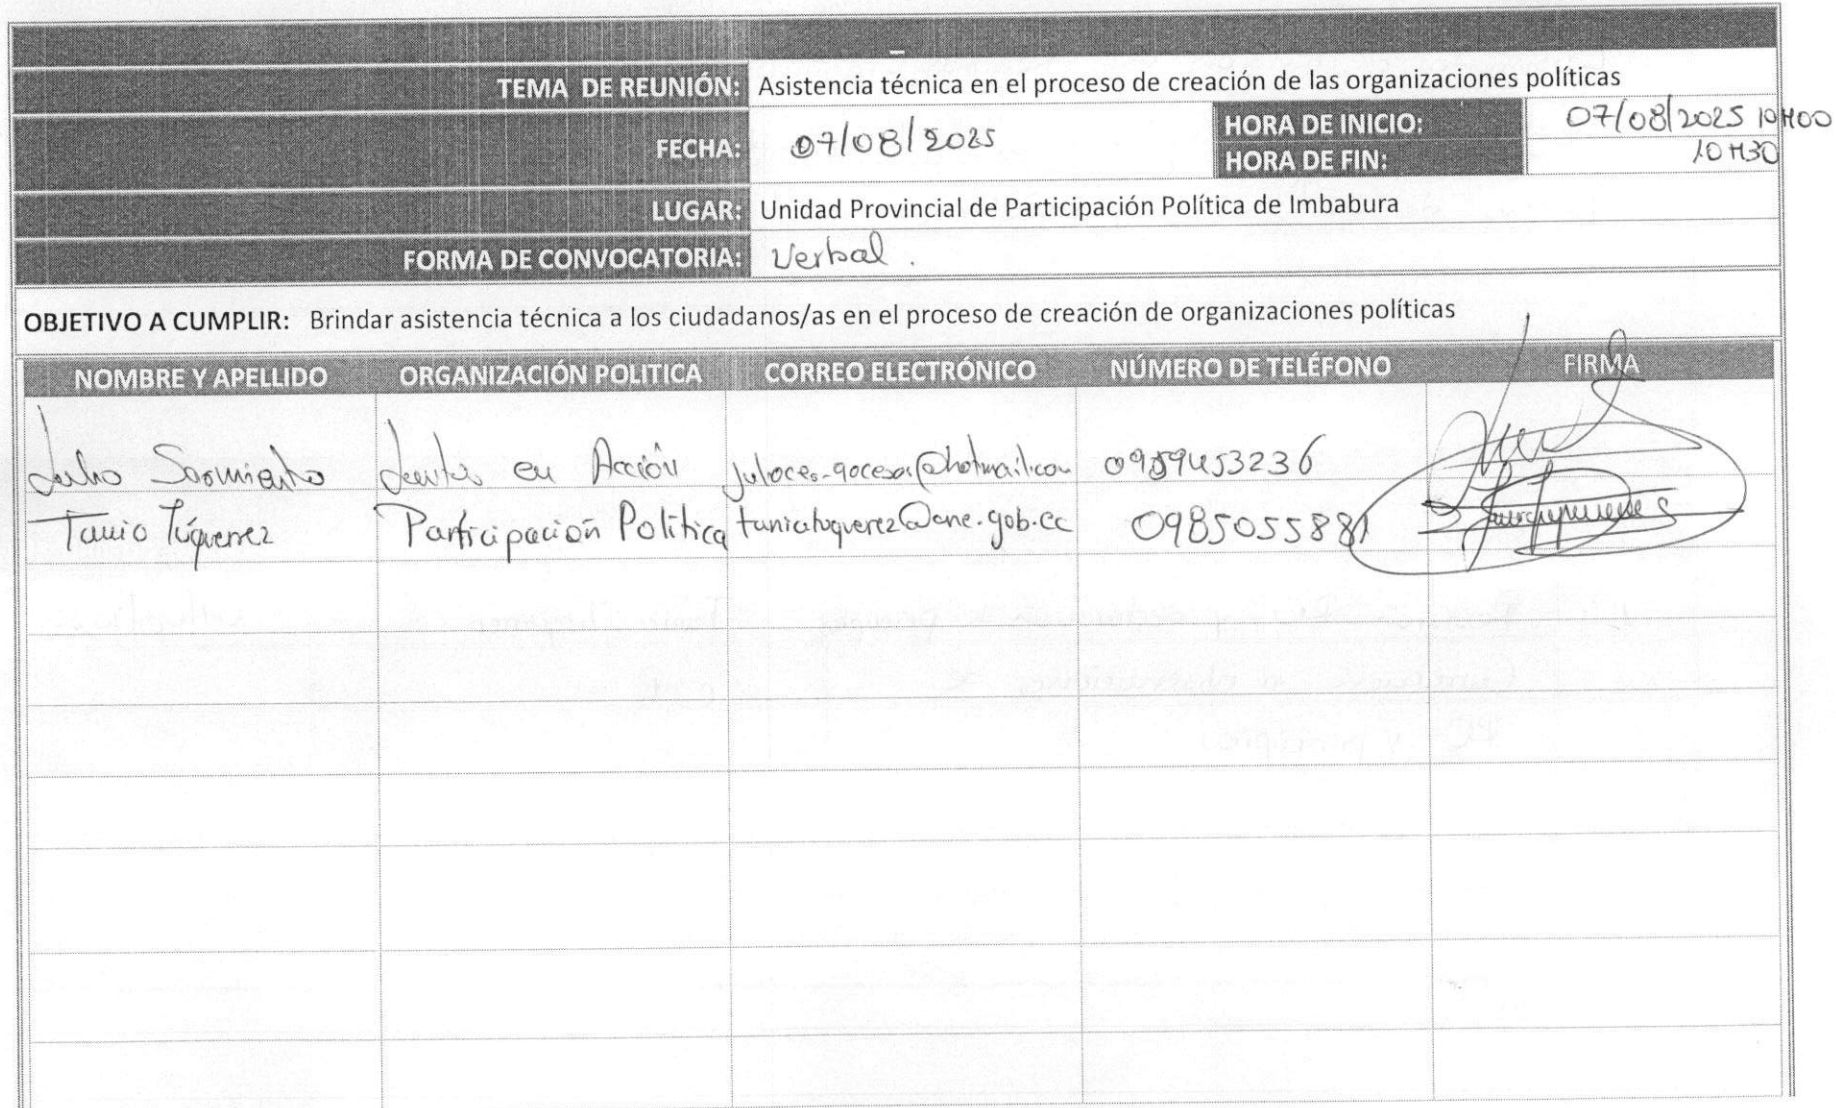 TEMA DE REUNIÓN: Asistencia técnica en el proceso de creación de las organizaciones políticas
FECHA: 07/08/2025
HORA DE INICIO: 07/08/2025 10H00
HORA DE FIN: 10H30
LUGAR: Unidad Provincial de Participación Política de Imbabura
FORMA DE CONVOCATORIA: Verbal.
OBJETIVO A CUMPLIR: Brindar asistencia técnica a los ciudadanos/as en el proceso de creación de organizaciones políticas
NOMBRE Y APELLIDO ORGANIZACIÓN POLITICA CORREO ELECTRÓNICO NÚMERO DE TELÉFONO FIRMA
Sarmiento en Acción 0959453236
Participación Política 0985055881